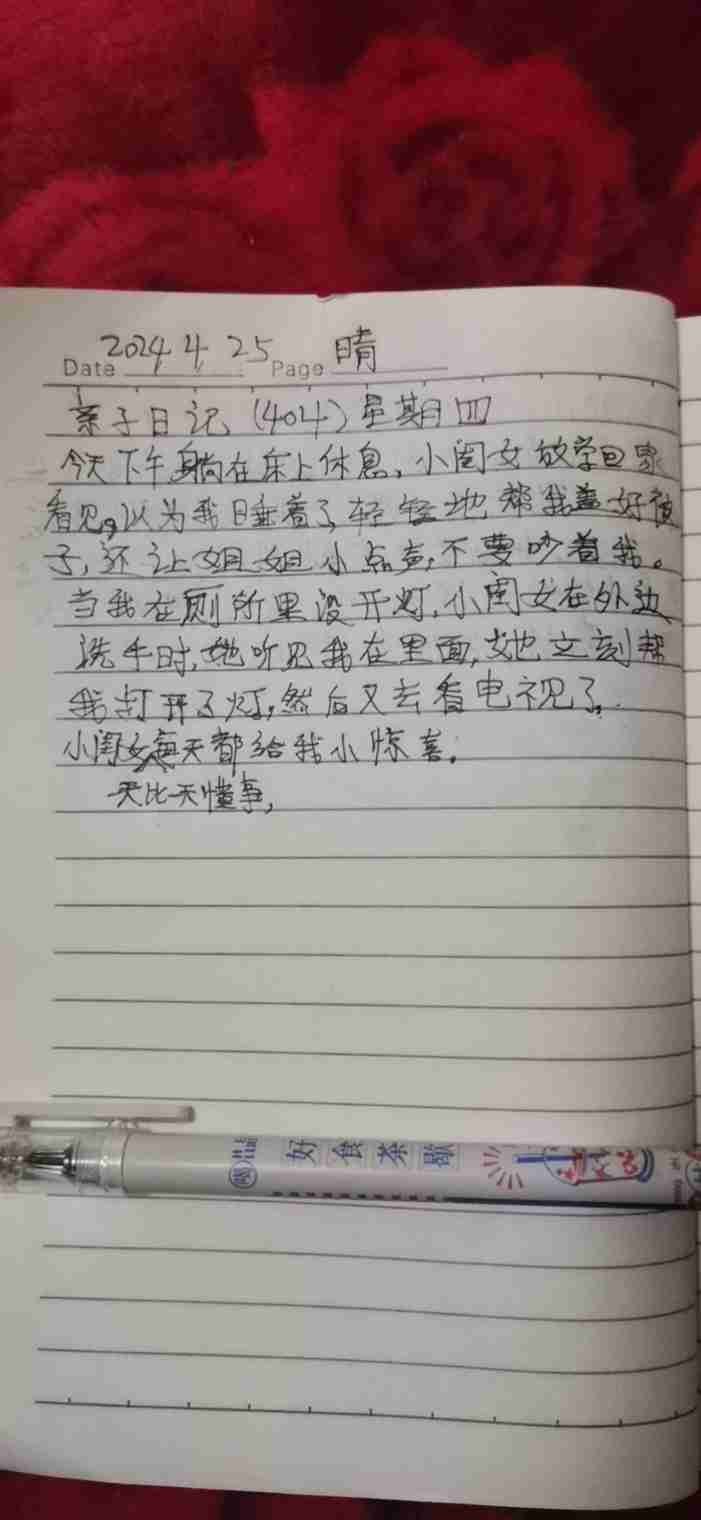 Date 2024 4 25 Page 晴
亲子日记 (404) 星期四
今天下午躺在床上休息,小闺女放学回家
看见,以为我睡着了轻轻地帮我盖好被
子,还让姐姐小点声,不要吵着我。
当我在厕所里没开灯,小闺女在外边
洗手时,她听见我在里面,她立刻帮
我打开了灯,然后又去看电视了。
小闺女每天都给我小惊喜。
一天比一天懂事,
好食茶歇